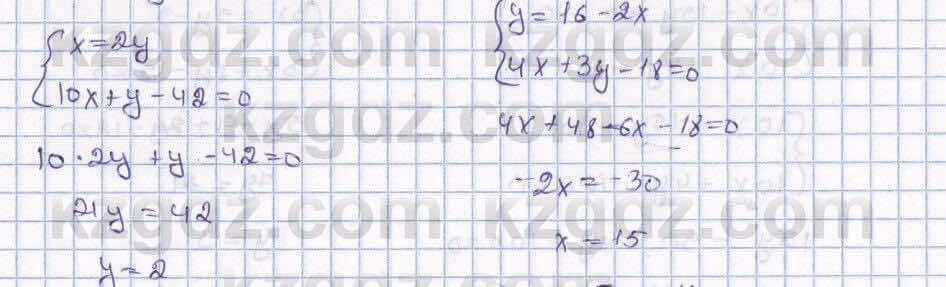 x = 2y
10x + y - 42 = 0
10 · 2y + y - 42 = 0
21y = 42
y = 2
y = 16 - 2x
4x + 3y - 18 = 0
4x + 48 - 6x - 18 = 0
-2x = -30
x = 15
kzgdz.com
kzgdz.com
kzgdz.com
kzgdz.com
kzgdz.com